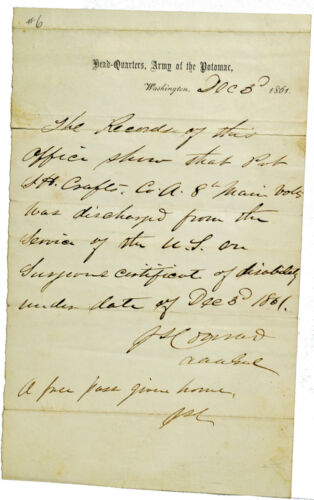 #6
Head-Quarters, Army of the Potomac,
Washington, Dec 3d 1861.
The Records of this
Office show that Pvt
Crafts. Co A. 8th Main Vols
was discharged from the
Service of the U.S. on
Surgeons certificat of disability
under date of Dec 3d 1861.
A free pass given home.